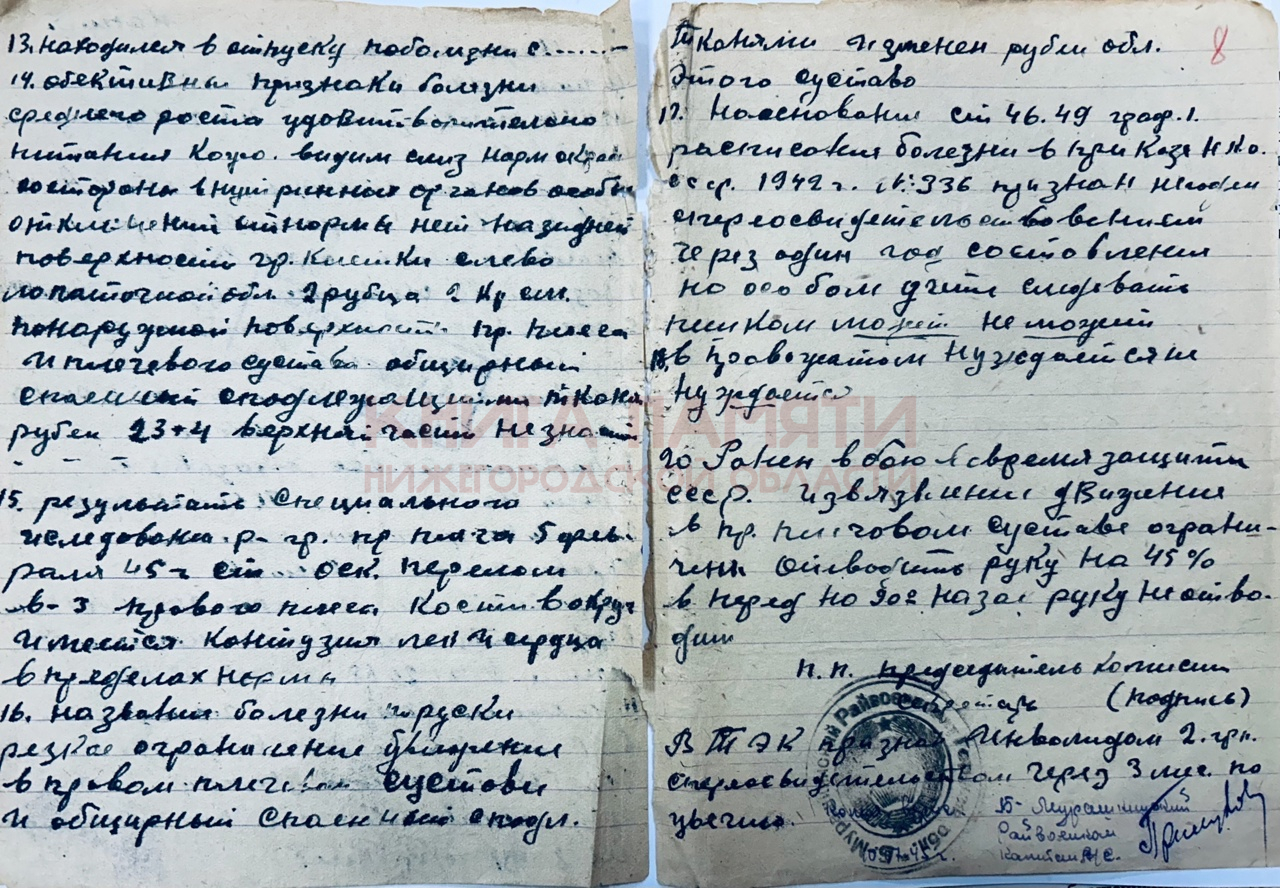 13. находился в отпуску по болизни с.......–
14. обективные признаки болезни
среднего роста удовитворительно
питания кожа. видим слиз нарм окрас
состороны внутринных органов особых
отклонений от нормы нет на задней
поверхности гр. клетки слево
лопаточной обл. 2 рубца 2 кр см.
по наружной поверхности пр. плеча
и плечевого сустава общирный
спаеный сподлежащими ткани
рубец 23+4 верхней части
15. результать специального
иследовани р-гр. пр плеча 5 фев-
раля 45 г ст оск. перелом
в-3 правого плеча кости вокруг
имеется контузия лег и сердца
в пределах нармы
16. название болезни поруски
резкое ограничение движение
в правом плечевом суставе
и общирный спаеный с подл.
8
тканями изменен рубец обл.
этого суставо
17. на основание ст 46. 49 граф. 1.
расписания болезни в приказе НКО.
ссср. 1942 г. №: 336 признан негоден
спереосвидетельствованием
через один год состовления
на особом учёте следовать
пешком может неможит
18. в провожатом нуждается не
нуждается
20 Ранен в бою вовремя защиты
ссср. движение
в пр. плечовом суставе ограни-
чены отводить руку на 45%
в перед на 90° назад руку не отво-
дит
п.п. председатель комисии
секретарь (подпись)
ВТЭК признан инволидом 2. гр.
спереосвидетельством через 3 мес. по
увечию.
Б-Мурашкинский
Райвоенком
капитан А/С.
КНИГА ПАМЯТИ
НИЖЕГОРОДСКОЙ ОБЛАСТИ